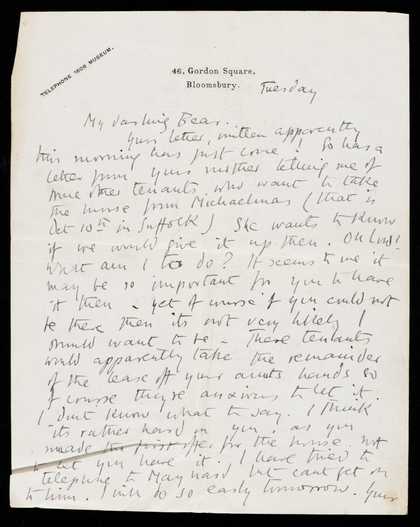 TELEPHONE 1608 MUSEUM.
46, Gordon Square,
Bloomsbury.
Tuesday
My darling Bear.
Your letter, written apparently
this morning has just come! So has a
letter from your mother telling me of
some other tenants who want to take
the house from Michaelmas (that is
Oct 10th in Suffolk) She wants to know
if we would give it up then. Oh Lord!
What am I to do? It seems to me it
may be so important for you to have
it then – yet of course if you could not
be there then its not very likely I
should want to be – These tenants
would apparently take the remainder
of the lease off your aunts hands so
of course they're anxious to let it.
I don't know what to say. I think
its rather hard on you, as you
made the first offer for the house not
to let you have it. I have tried to
telephone to Maynard but cant get on
to him. I will do so early tomorrow. Your